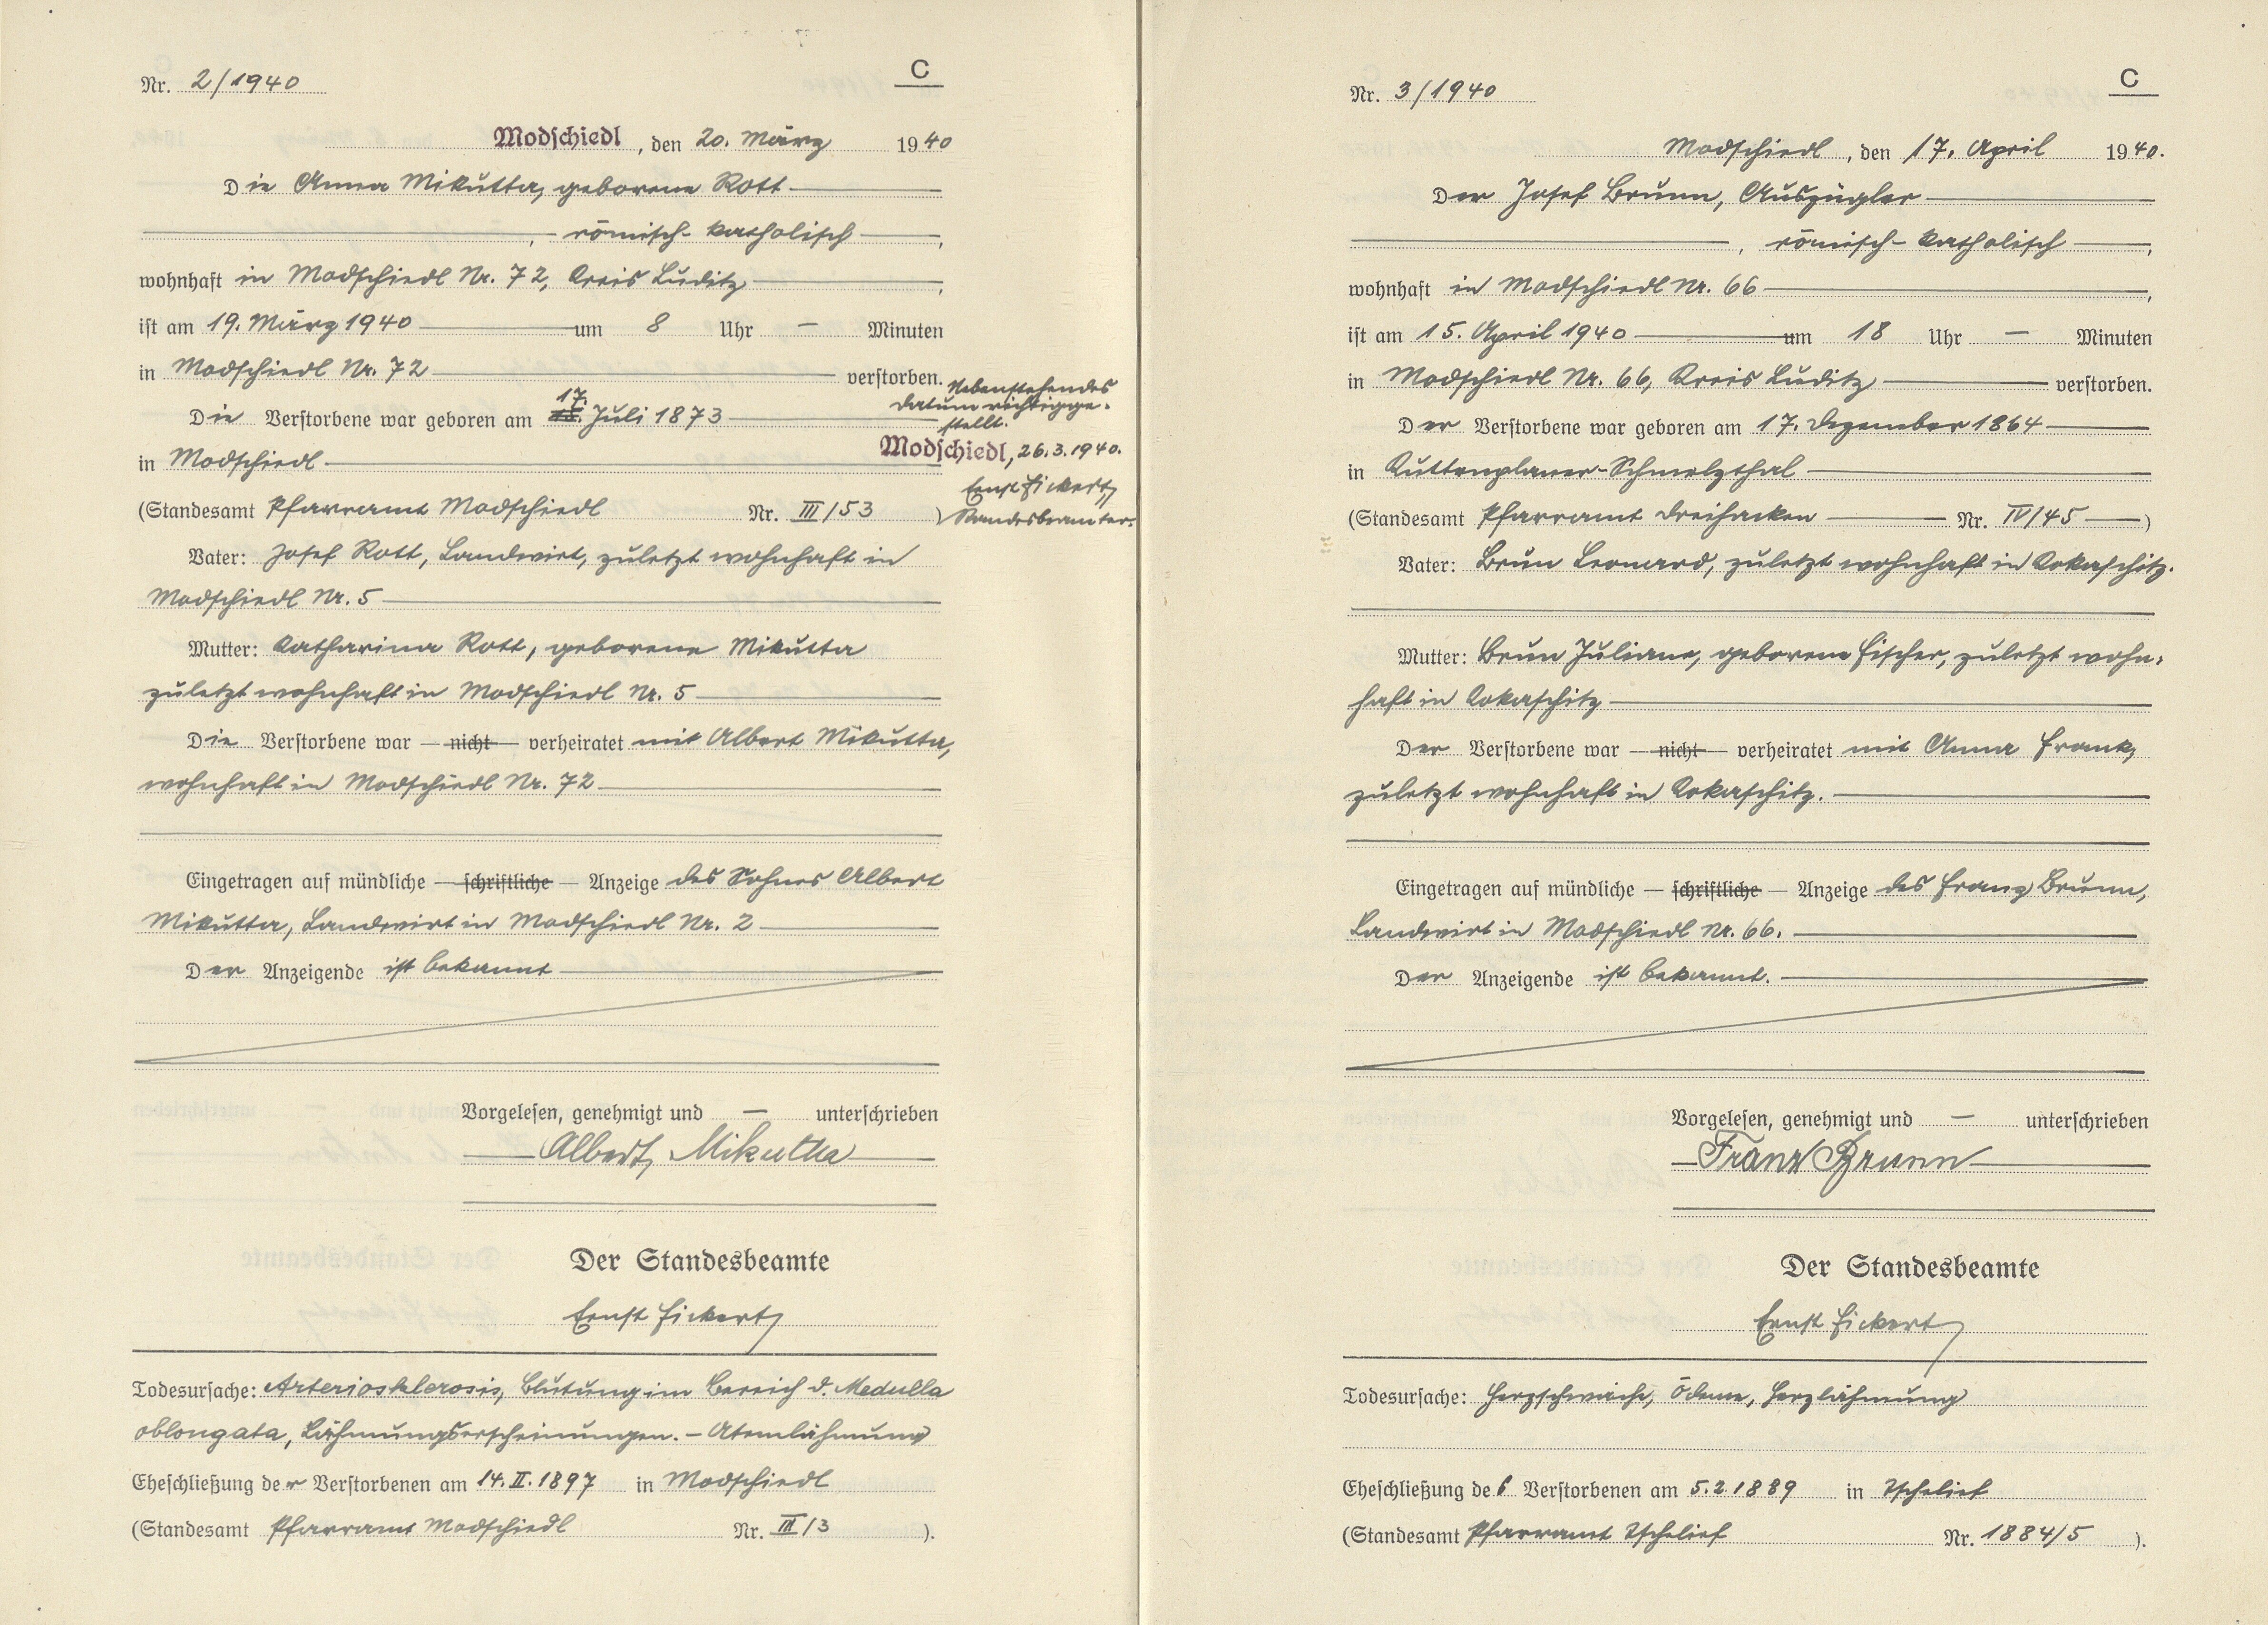 Nr. 2/1940
C
Modschiedl, den 20. März 1940
Die Anna Mikutta, geborene Rott
, römisch-katholisch,
wohnhaft in Modschiedl Nr. 72, Kreis Luditz,
ist am 19. März 1940 um 8 Uhr — Minuten
in Modschiedl Nr. 72 verstorben.
17.
Die Verstorbene war geboren am Juli 1873
in Modschiedl
(Standesamt Pfarramt Modschiedl Nr. III/53)
Nebenstehendes
Datum richtigge-
stellt.
Modschiedl, 26.3.1940.
Ernst Fickert
Standesbeamter.
Vater: Josef Rott, Landwirt, zuletzt wohnhaft in
Modschiedl Nr. 5
Mutter: Katharina Rott, geborene Mikutta
zuletzt wohnhaft in Modschiedl Nr. 5
Die Verstorbene war — nicht — verheiratet mit Albert Mikutta,
wohnhaft in Modschiedl Nr. 72
Eingetragen auf mündliche — schriftliche — Anzeige des Sohnes Albert
Mikutta, Landwirt in Modschiedl Nr. 2
Der Anzeigende ist bekannt
Vorgelesen, genehmigt und — unterschrieben
Albert Mikutta
Der Standesbeamte
Ernst Fickert
Todesursache: Arteriosklerosis, Blutung im Bereich d. Medulla
oblongata, Lähmungserscheinungen. – Atemlähmung
Eheschließung der Verstorbenen am 14.II.1897 in Modschiedl
(Standesamt Pfarramt Modschiedl Nr. III/3).
Nr. 3/1940
C
Modschiedl, den 17. April 1940.
Der Josef Brunn, Auszügler
, römisch-katholisch,
wohnhaft in Modschiedl Nr. 66,
ist am 15. April 1940 um 18 Uhr — Minuten
in Modschiedl Nr. 66, Kreis Luditz verstorben.
Der Verstorbene war geboren am 17. Dezember 1864
in Kuttenplaner-Schmelzthal
(Standesamt Pfarramt Dreihacken Nr. IV/45)
Vater: Brun Leonard, zuletzt wohnhaft in Kokaschitz.
Mutter: Brun Juliane, geborene Fischer, zuletzt wohn-
haft in Kokaschitz
Der Verstorbene war — nicht — verheiratet mit Anna Frank,
zuletzt wohnhaft in Kokaschitz.
Eingetragen auf mündliche — schriftliche — Anzeige des Franz Brunn,
Landwirt in Modschiedl Nr. 66.
Der Anzeigende ist bekannt.
Vorgelesen, genehmigt und — unterschrieben
Franz Brunn
Der Standesbeamte
Ernst Fickert
Todesursache: Herzschwäche, Ödeme, Herzlähmung
Eheschließung des Verstorbenen am 5.2.1889 in Tschelief
(Standesamt Pfarramt Tschelief Nr. 1884/5).